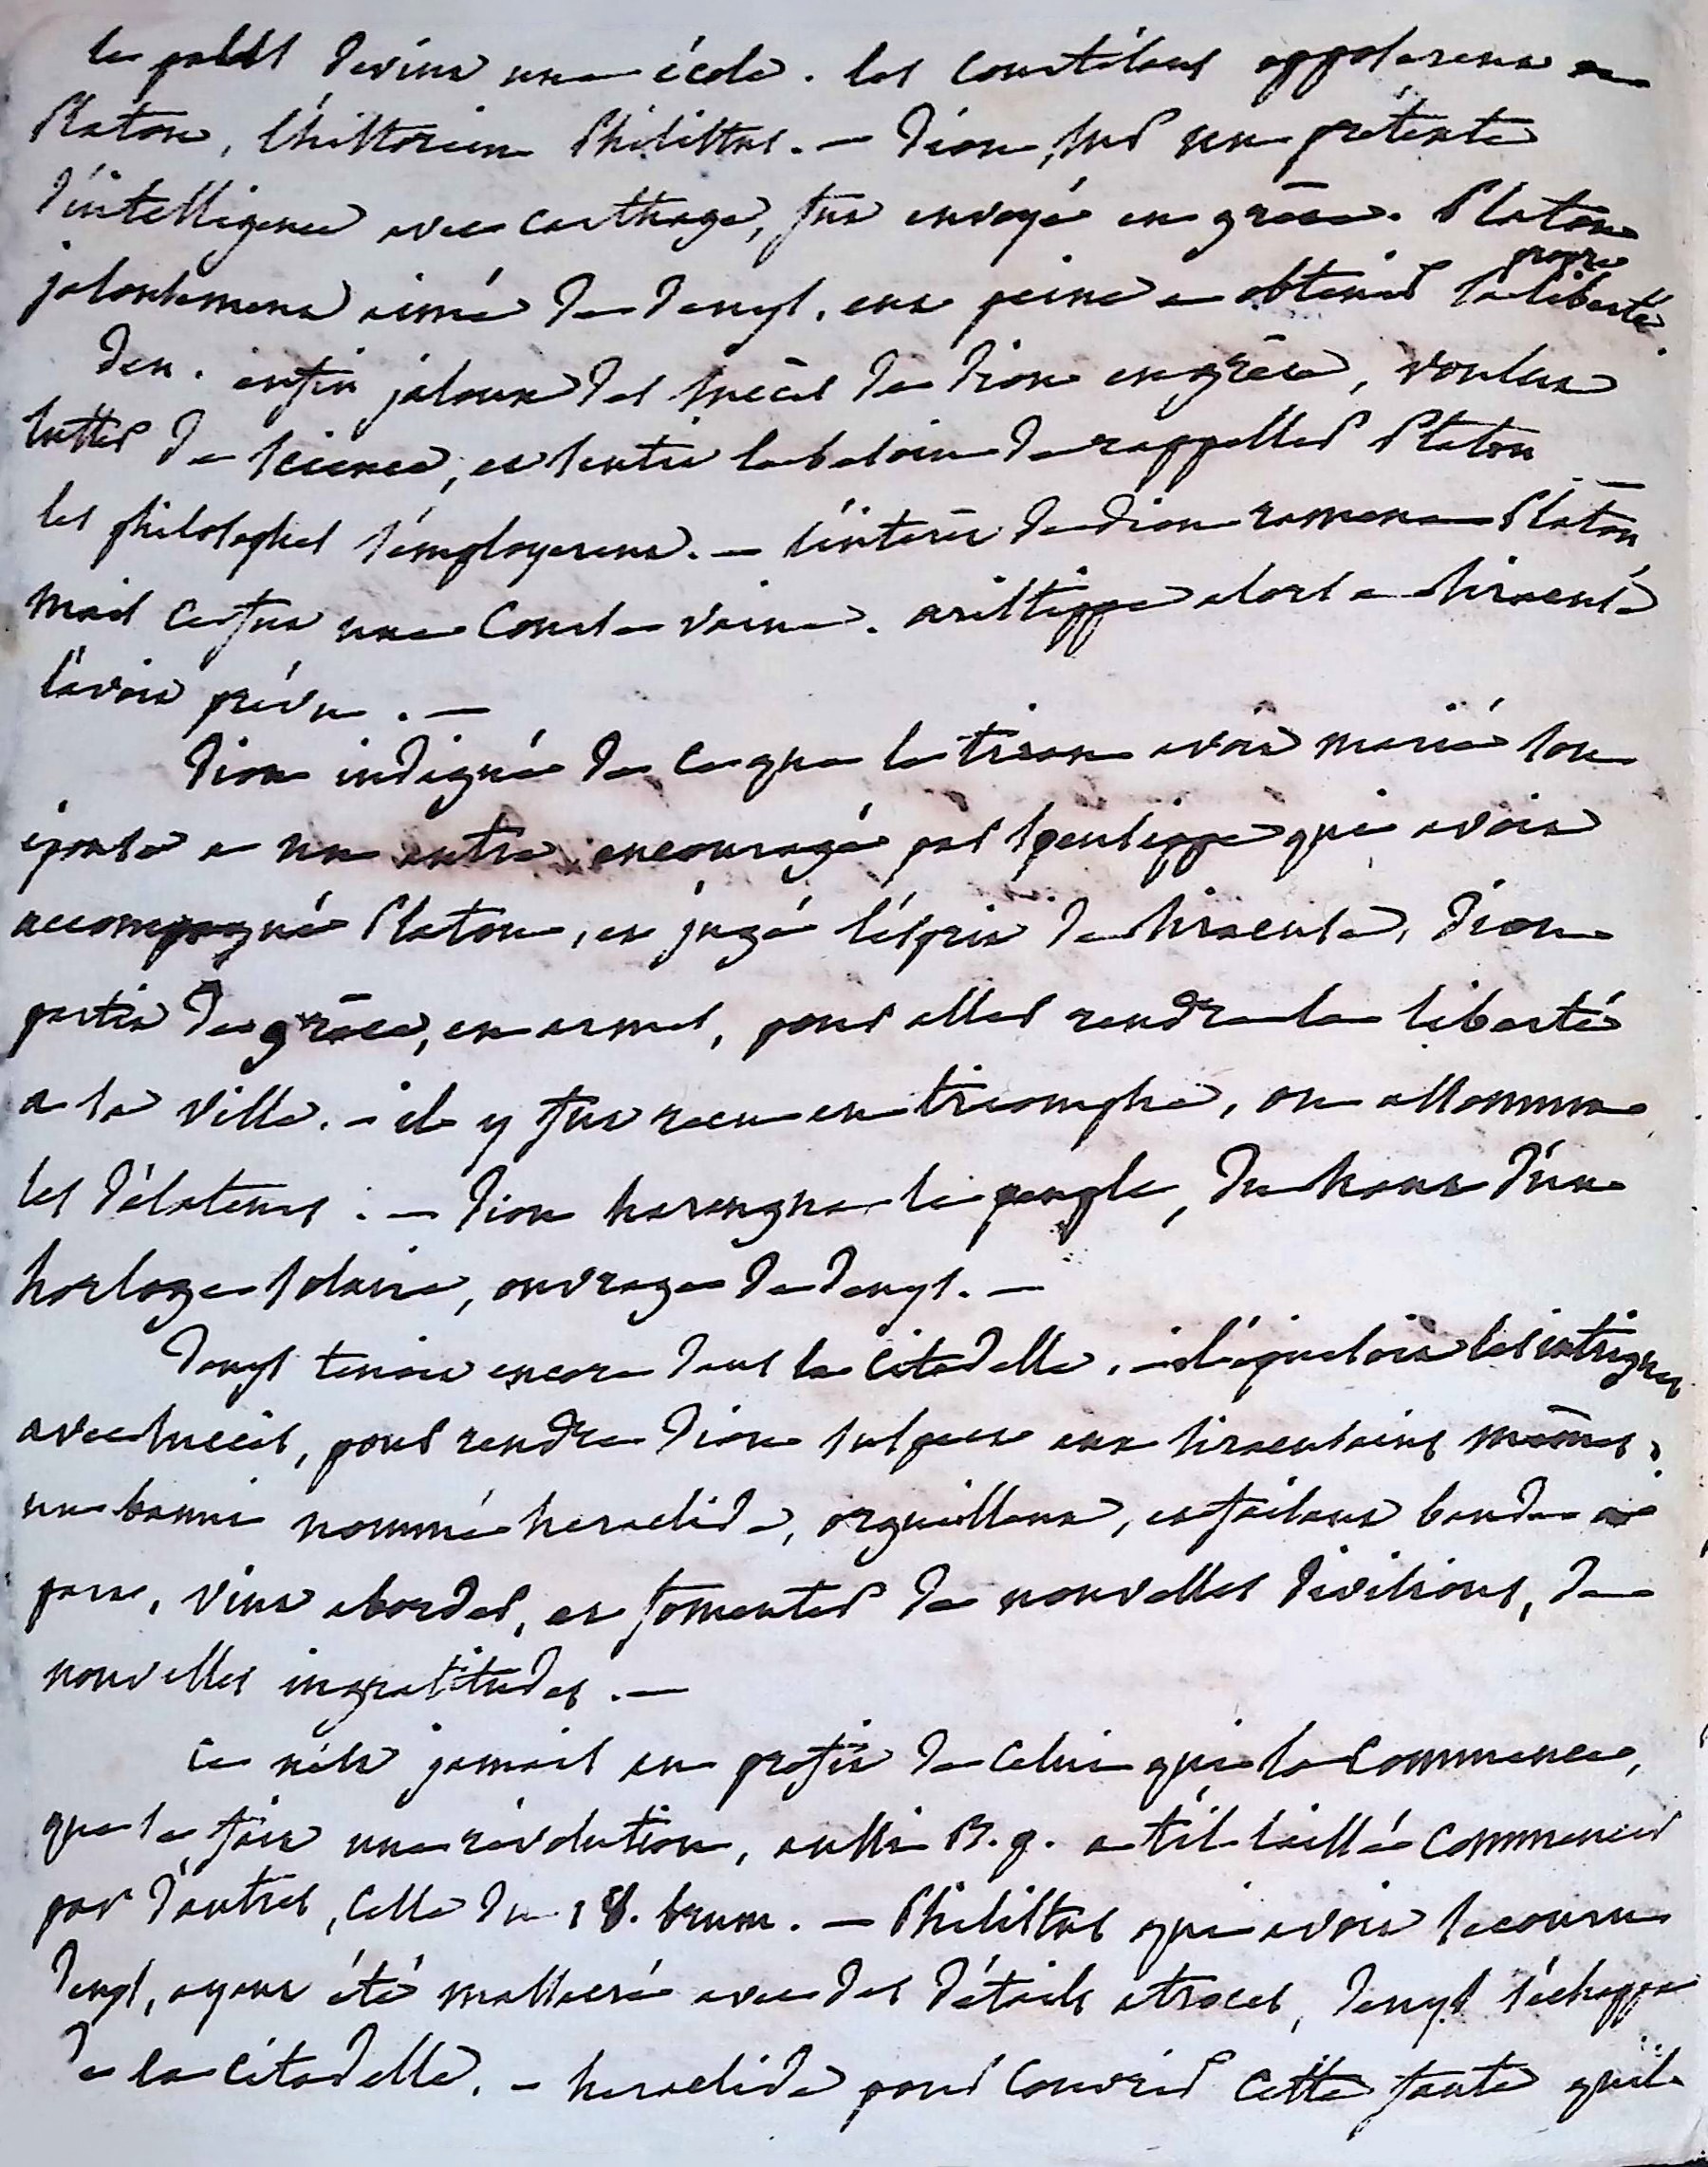 le palais devint une école. les courtisans opposèrent a
Platon, l'historien Philistus. — Dion, sur un prétexte
d'intelligence avec carthage, fut envoyé en grèce. Platon
jalousement aimé de denys, eut peine a obtenir sa propre liberté.
den. enfin jaloux des succès de Dion en grèce, voulut
lutter de science, et sentit le besoin de rappeller Platon
les philosophes s'employerent. — l'intérêt de dion ramena Platon,
mais ce fut une course vaine. aristippe alors a siracuse
l'avoit prévu. —
Dion indigné de ce que le tiran avoit marié son
épouse a un autre, encouragé par speusippe qui avoit
accompagné Platon, et jugé l'esprit de siracuse, Dion
partit de grèce, en armes, pour aller rendre la liberté
a sa ville. - il y fut recu en triomphe, on assomma
les délateurs. — Dion harangua le peuple, du haut d'une
horloge solaire, ouvrage de denys. —
Denys tenoit encore dans la citadelle. il épuisoit les intrigues
avec succès, pour rendre Dion suspect aux siracusains mêmes.
un banni nommé heraclide, orgueilleux, et faisant bande a
part, vint aborder, et fomenter de nouvelles divisions, de
nouvelles ingratitudes. —
ce n'est jamais au profit de celui qui la commence,
que se fait une révolution, aussi B. p. a t'il laissé commencer
par d'autres, celle du 18. brum. — Philistus qui avoit secouru
denys, ayant été massacré avec des détails atroces, denys s'échappa
de la citadelle. - heraclide pour couvrir cette faute qu'il